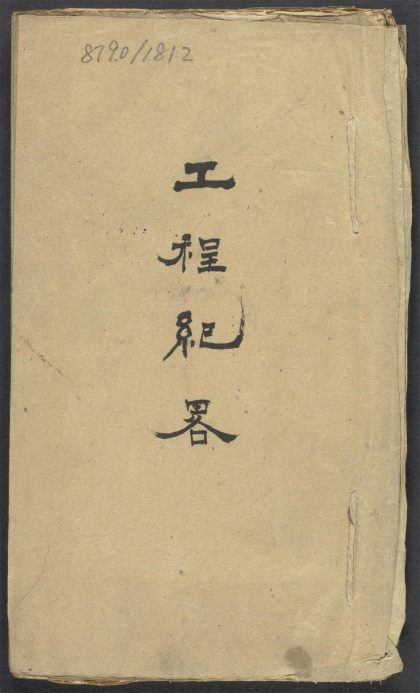 8790/1812
工程紀畧